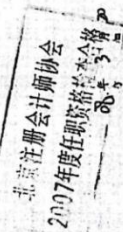 北京注册会计师协会
2007年度任职资格检查合格
年 3 月